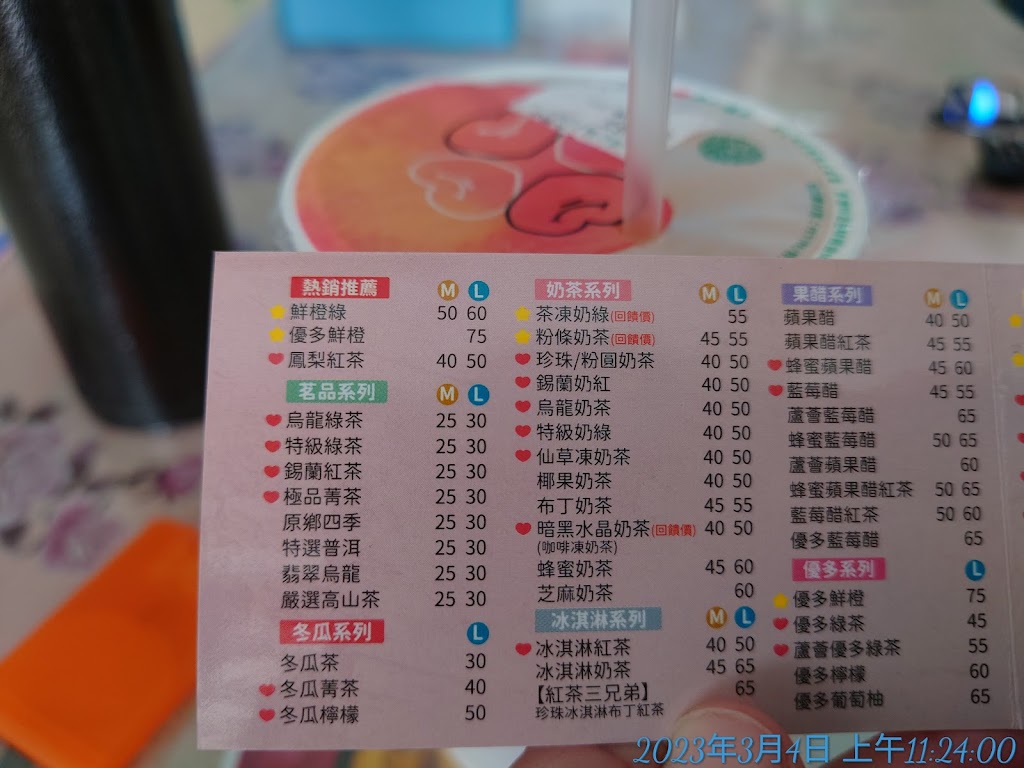 熱銷推薦 M L
鮮橙綠 50 60
優多鮮橙 75
鳳梨紅茶 40 50
茗品系列 M L
烏龍綠茶 25 30
特級綠茶 25 30
錫蘭紅茶 25 30
極品菁茶 25 30
原鄉四季 25 30
特選普洱 25 30
翡翠烏龍 25 30
嚴選高山茶 25 30
冬瓜系列 L
冬瓜茶 30
冬瓜菁茶 40
冬瓜檸檬 50
奶茶系列 M L
茶凍奶綠(回饋價) 55
粉條奶茶(回饋價) 45 55
珍珠/粉圓奶茶 40 50
錫蘭奶紅 40 50
烏龍奶茶 40 50
特級奶綠 40 50
仙草凍奶茶 40 50
椰果奶茶 40 50
布丁奶茶 45 55
暗黑水晶奶茶(回饋價) 40 50
(咖啡凍奶茶)
蜂蜜奶茶 45 60
芝麻奶茶 60
冰淇淋系列 M L
冰淇淋紅茶 40 50
冰淇淋奶茶 45 65
【紅茶三兄弟】 65
珍珠冰淇淋布丁紅茶
果醋系列 M L
蘋果醋 40 50
蘋果醋紅茶 45 55
蜂蜜蘋果醋 45 60
藍莓醋 45 55
蘆薈藍莓醋 65
蜂蜜藍莓醋 50 65
蘆薈蘋果醋 60
蜂蜜蘋果醋紅茶 50 65
藍莓醋紅茶 50 60
優多藍莓醋 65
優多系列 L
優多鮮橙 75
優多綠茶 45
蘆薈優多綠茶 55
優多檸檬 60
優多葡萄柚 65
2023年3月4日 上午11:24:00